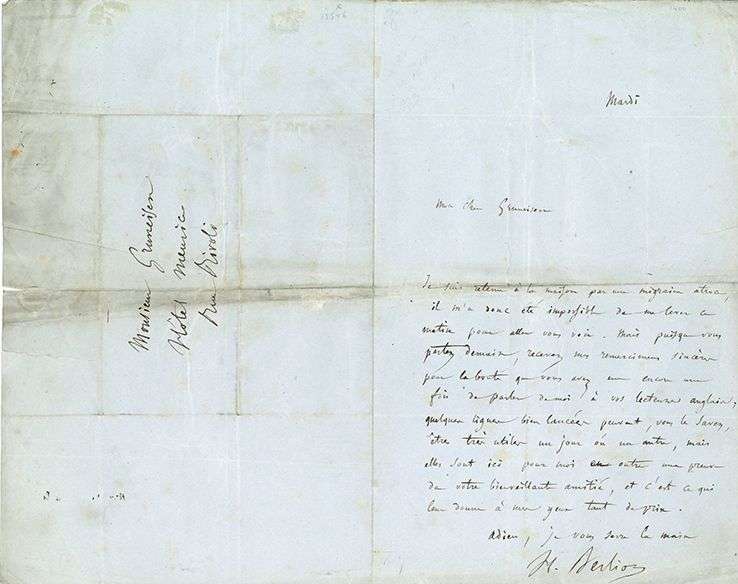 Monsieur Gruneisen
Hôtel Meurice
Rue Rivoli
Mardi
Mon cher Gruneisen
Je suis retenu à la maison par une migraine atroce,
il m'a donc été impossible de me lever ce
matin pour aller vous voir. Mais puisque vous
partez demain, recevez mes remerciemens sincères
pour la bonté que vous avez eue encore une
fois de parler de moi à vos lecteurs anglais;
quelques lignes bien lancées peuvent, vous le savez,
être très utiles un jour ou un autre, mais
elles sont ici pour moi en outre une preuve
de votre bienveillante amitié, et c'est ce qui
leur donne à mes yeux tant de prix.
Adieu, je vous serre la main
H. Berlioz